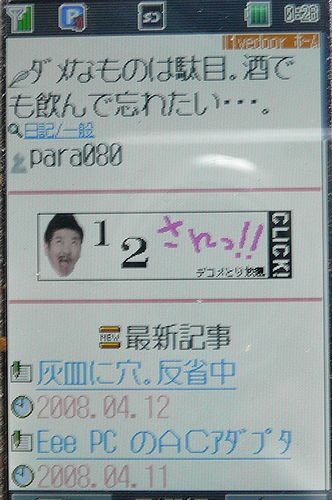 0:28
livedoor ホーム
ダメなものは駄目。酒で
も飲んで忘れたい・・・。
日記/一般
para080
1 2 されっ!! CLICK!
デコメとり放題
NEW 最新記事
灰皿に穴。反省中
2008.04.12
Eee PC のACアダプタ
2008.04.11